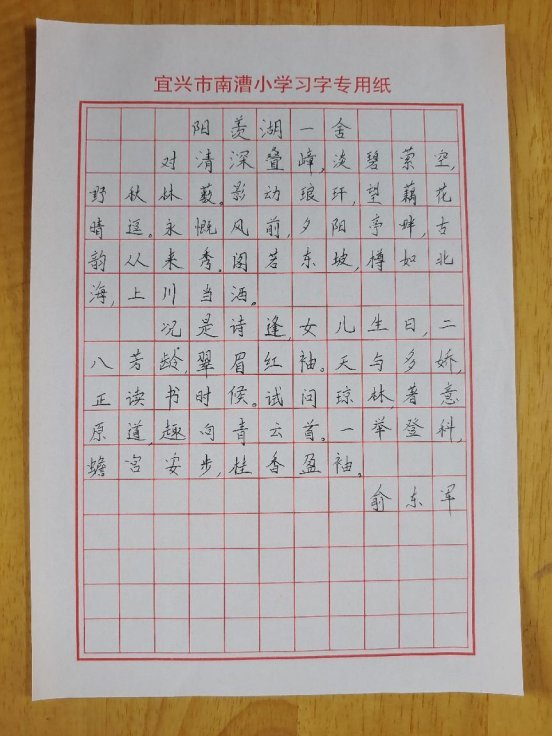 宜兴市南漕小学习字专用纸
阳羡湖一舍
对清深叠峰,淡碧萦空,
野秋林薮。影动琅玕,望藕花
晴遥。永慨风前,夕阳亭畔,古
韵从来秀。阁若东坡,樽如北
海,上川当酒。
况是诗逢,女儿生日,二
八芳龄,翠眉红袖。天与多娇,
正读书时候。试问琼林,著意
原道,趣向青云首。一举登科,
蟾宫安步,桂香盈袖。
俞东军